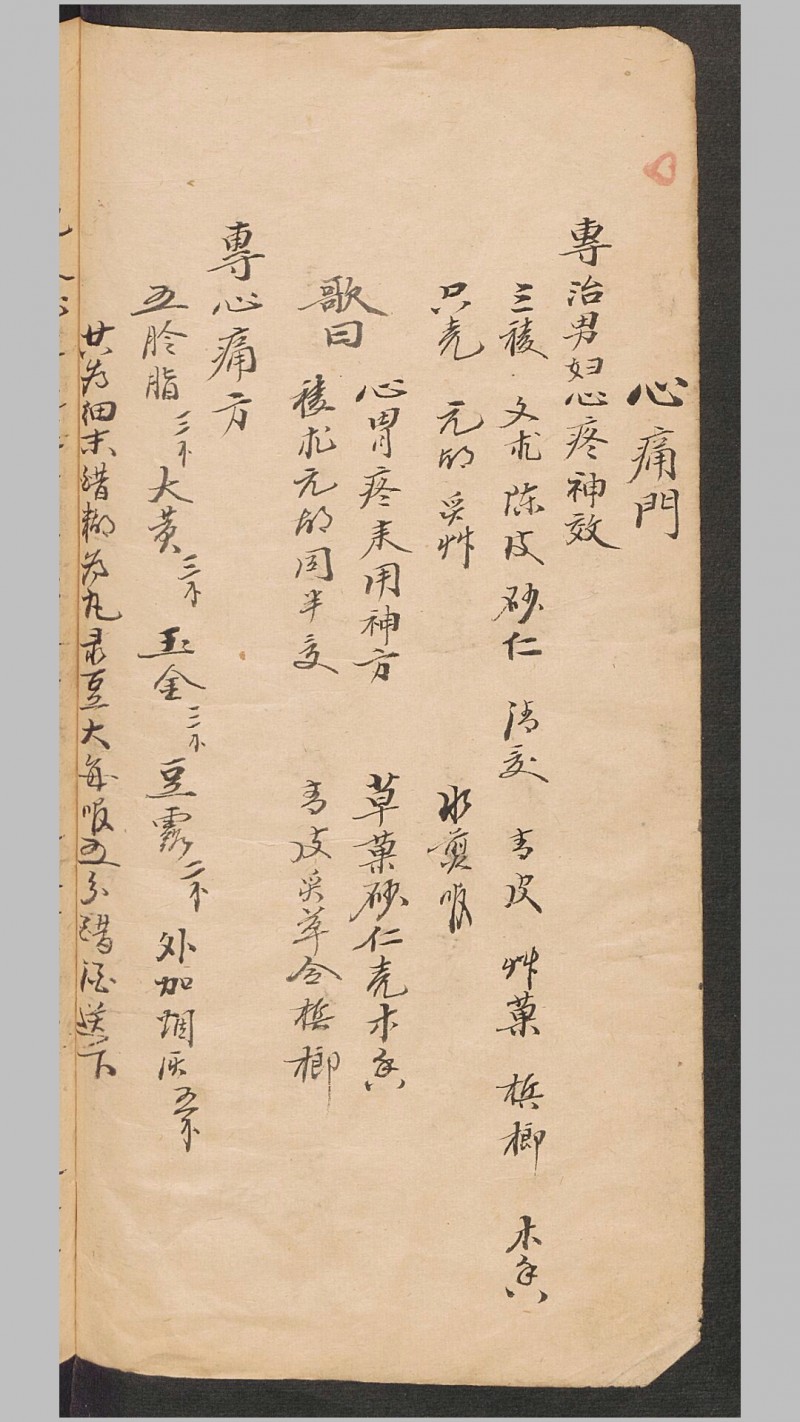 心痛門
專治男妇心疼神效
三稜 文朮 陈皮 砂仁 清交 青皮 艸菓 梹榔 木香
只壳 元胡 炙艸 水煎服
歌曰
心胃疼来用神方 草菓砂仁壳木香
稜朮元胡同半交 青皮炙草合梹榔
專心痛方
五脸脂 三不 大黄 三不 玉金 三不 豆霜 二不 外加 五不
共为细末醋糊为丸录豆大每服五分醋酒送下